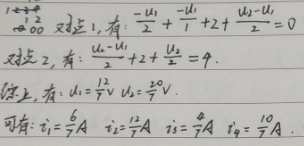 对点1,有: \frac{-u_1}{2} + \frac{-u_1}{1} + 2 + \frac{u_2-u_1}{2} = 0
对点2,有: \frac{u_2-u_1}{2} + 2 + \frac{u_2}{2} = 4.
综上,有: u_1 = \frac{12}{7}V u_2 = \frac{20}{7}V.
可有: i_1 = \frac{6}{7}A i_2 = \frac{12}{7}A i_3 = \frac{4}{7}A i_4 = \frac{10}{7}A.